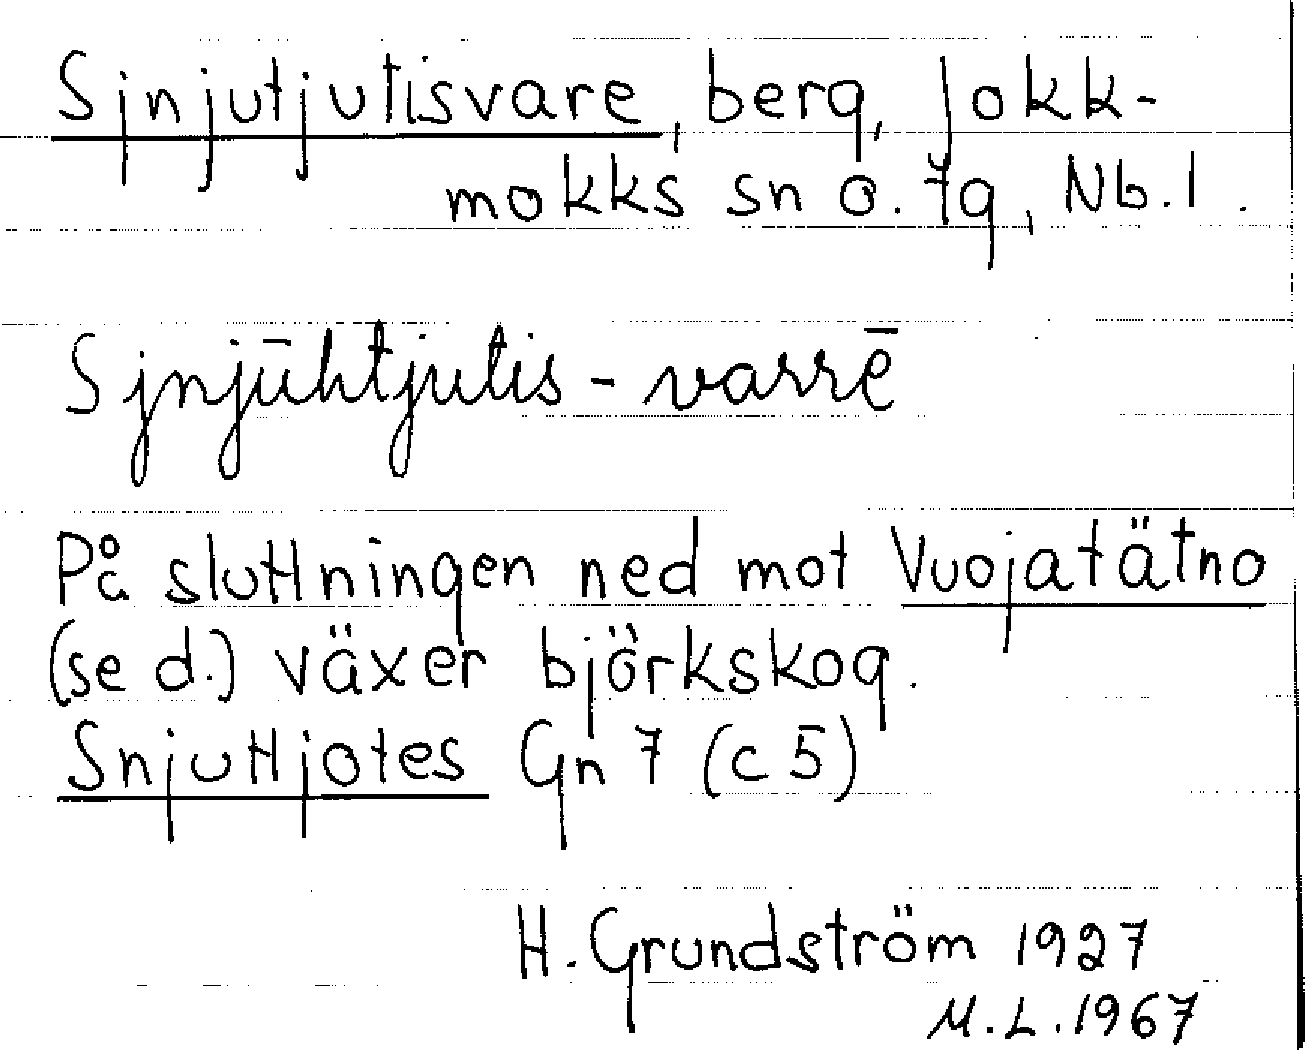 Sjnjutjutisvare, berg, Jokk-
mokks sn o. tg, Nb. l.
Sjnjūhtjutis-varrē
På sluttningen ned mot Vuojatätno
(se d.) växer björkskog.
Snjuttjotes Gn 7 (c 5)
H. Grundström 1927
M.L. 1967